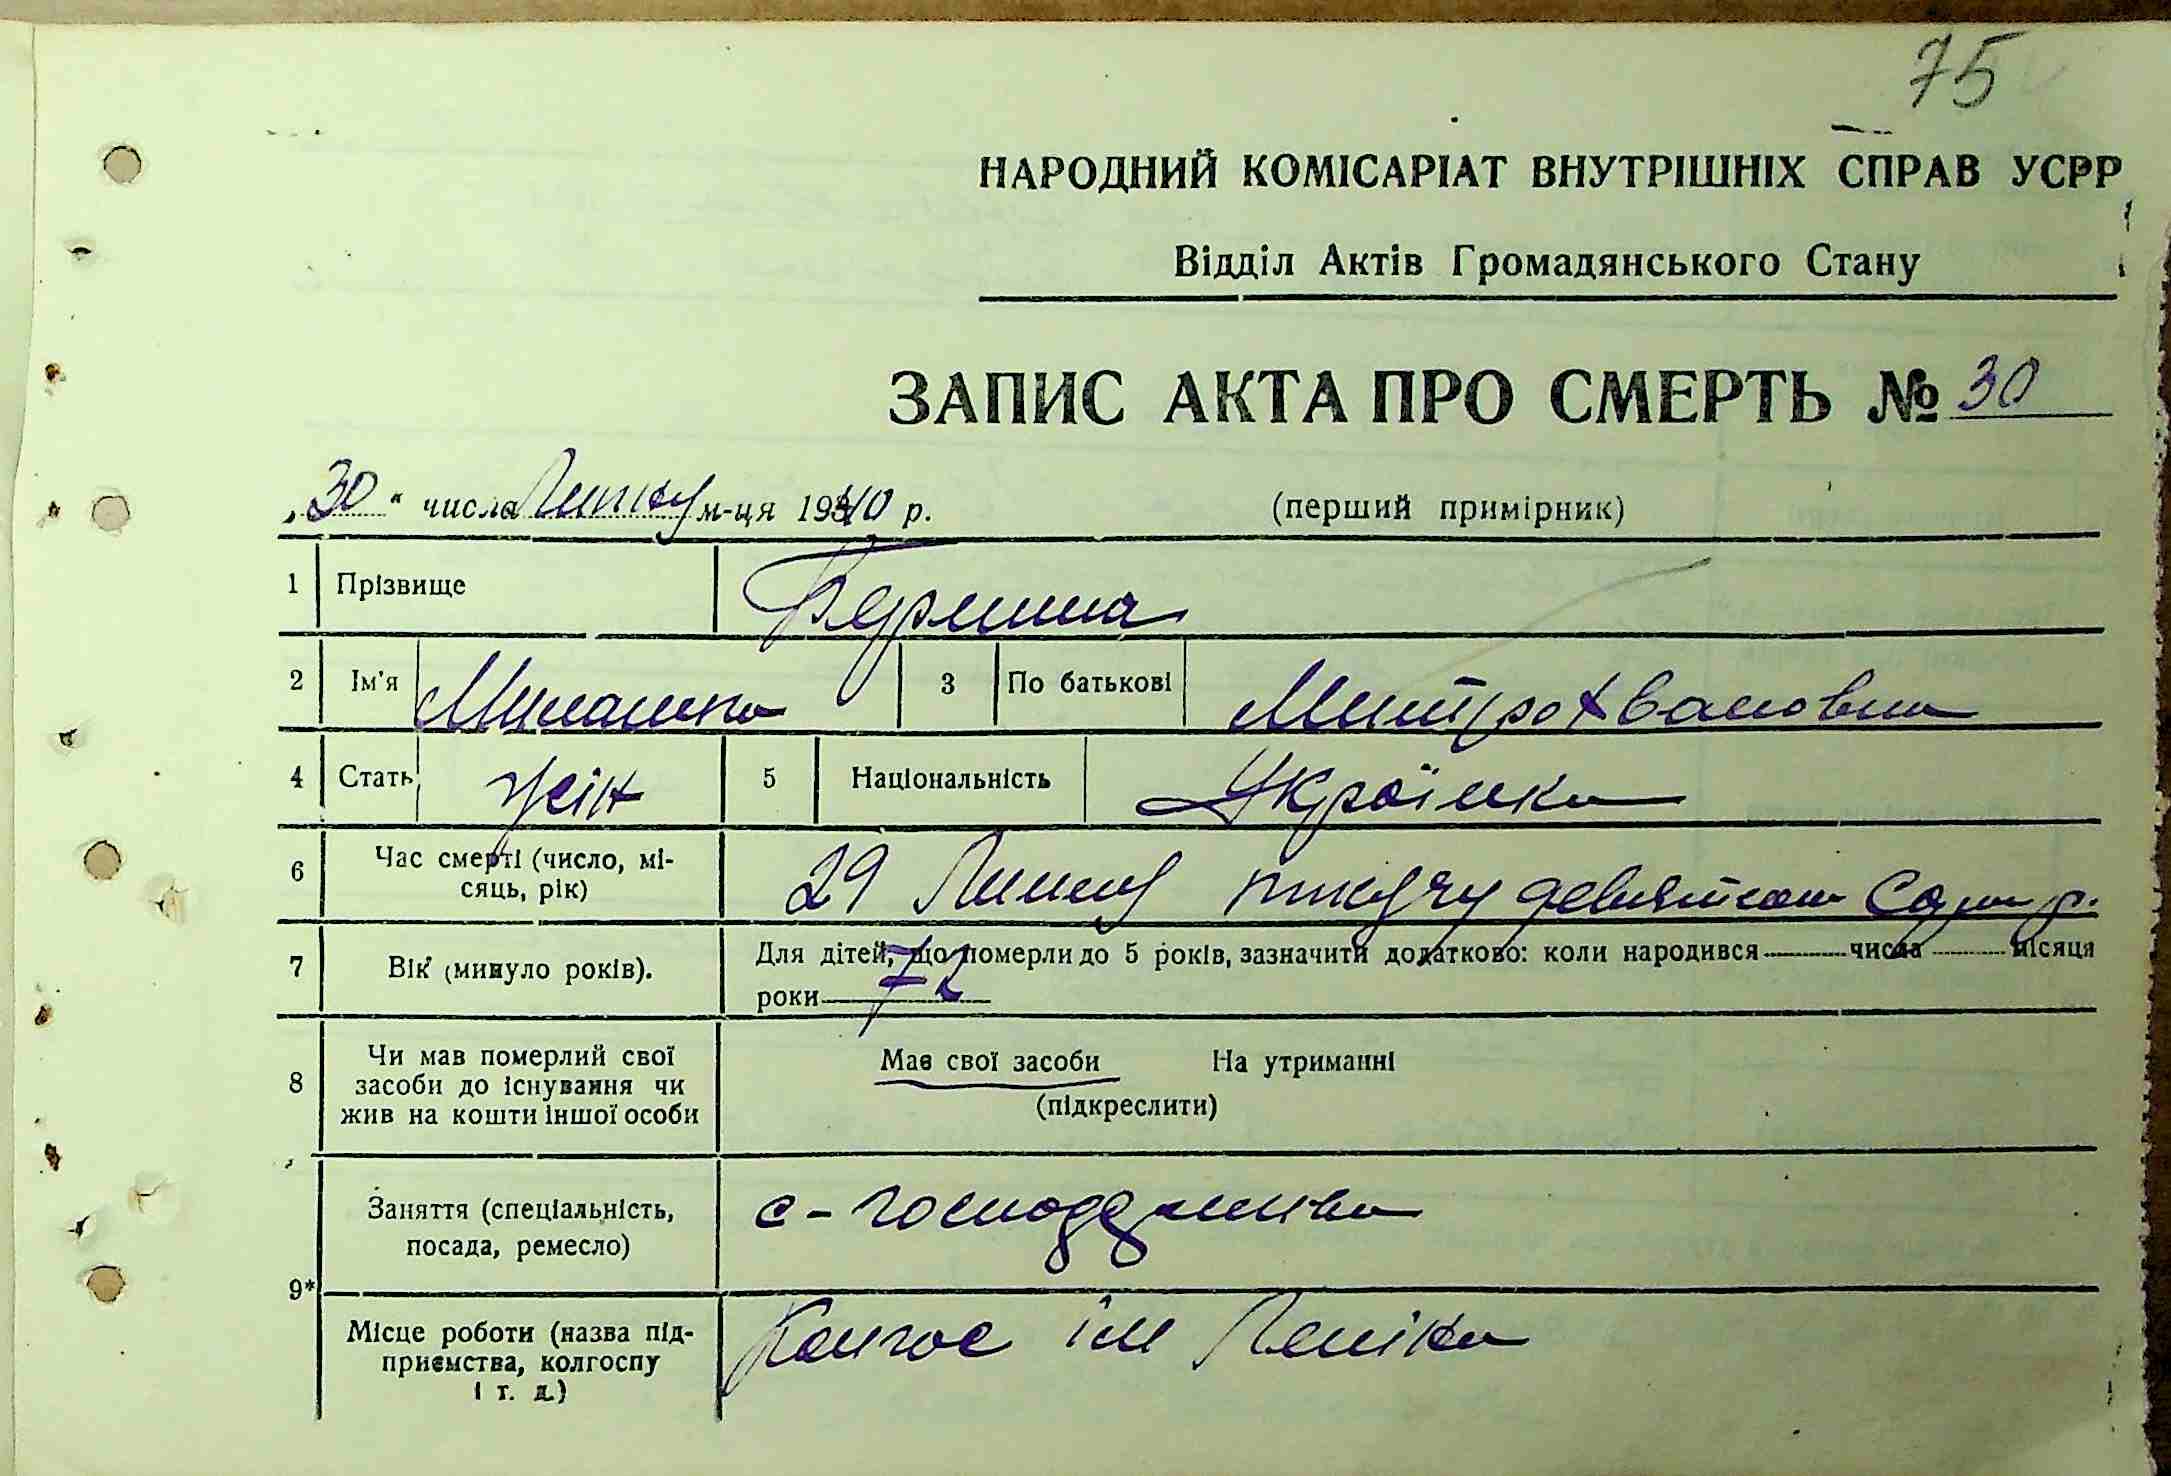 75
НАРОДНИЙ КОМІСАРІАТ ВНУТРІШНІХ СПРАВ УСРР
Відділ Актів Громадянського Стану
ЗАПИС АКТА ПРО СМЕРТЬ № 30
„30“ числа Липня м-ця 1940 р. (перший примірник)
1 Прізвище
2 Ім'я 3 По батькові Митрохвановна
4 Стать жін 5 Національність Українка
6 Час смерті (число, мі-
сяць, рік) 29 тисячу девятсот
7 Вік (минуло років). Для дітей, що померли до 5 років, зазначити додатково: коли народився числа місяця
роки 72
8 Чи мав померлий свої
засоби до існування чи
жив на кошти іншої особи
Має свої засоби На утриманні
(підкреслити)
Заняття (спеціальність,
посада, ремесло)
9*
Місце роботи (назва під-
приємства, колгоспу
і т. д.)
Колгос ім Леніна